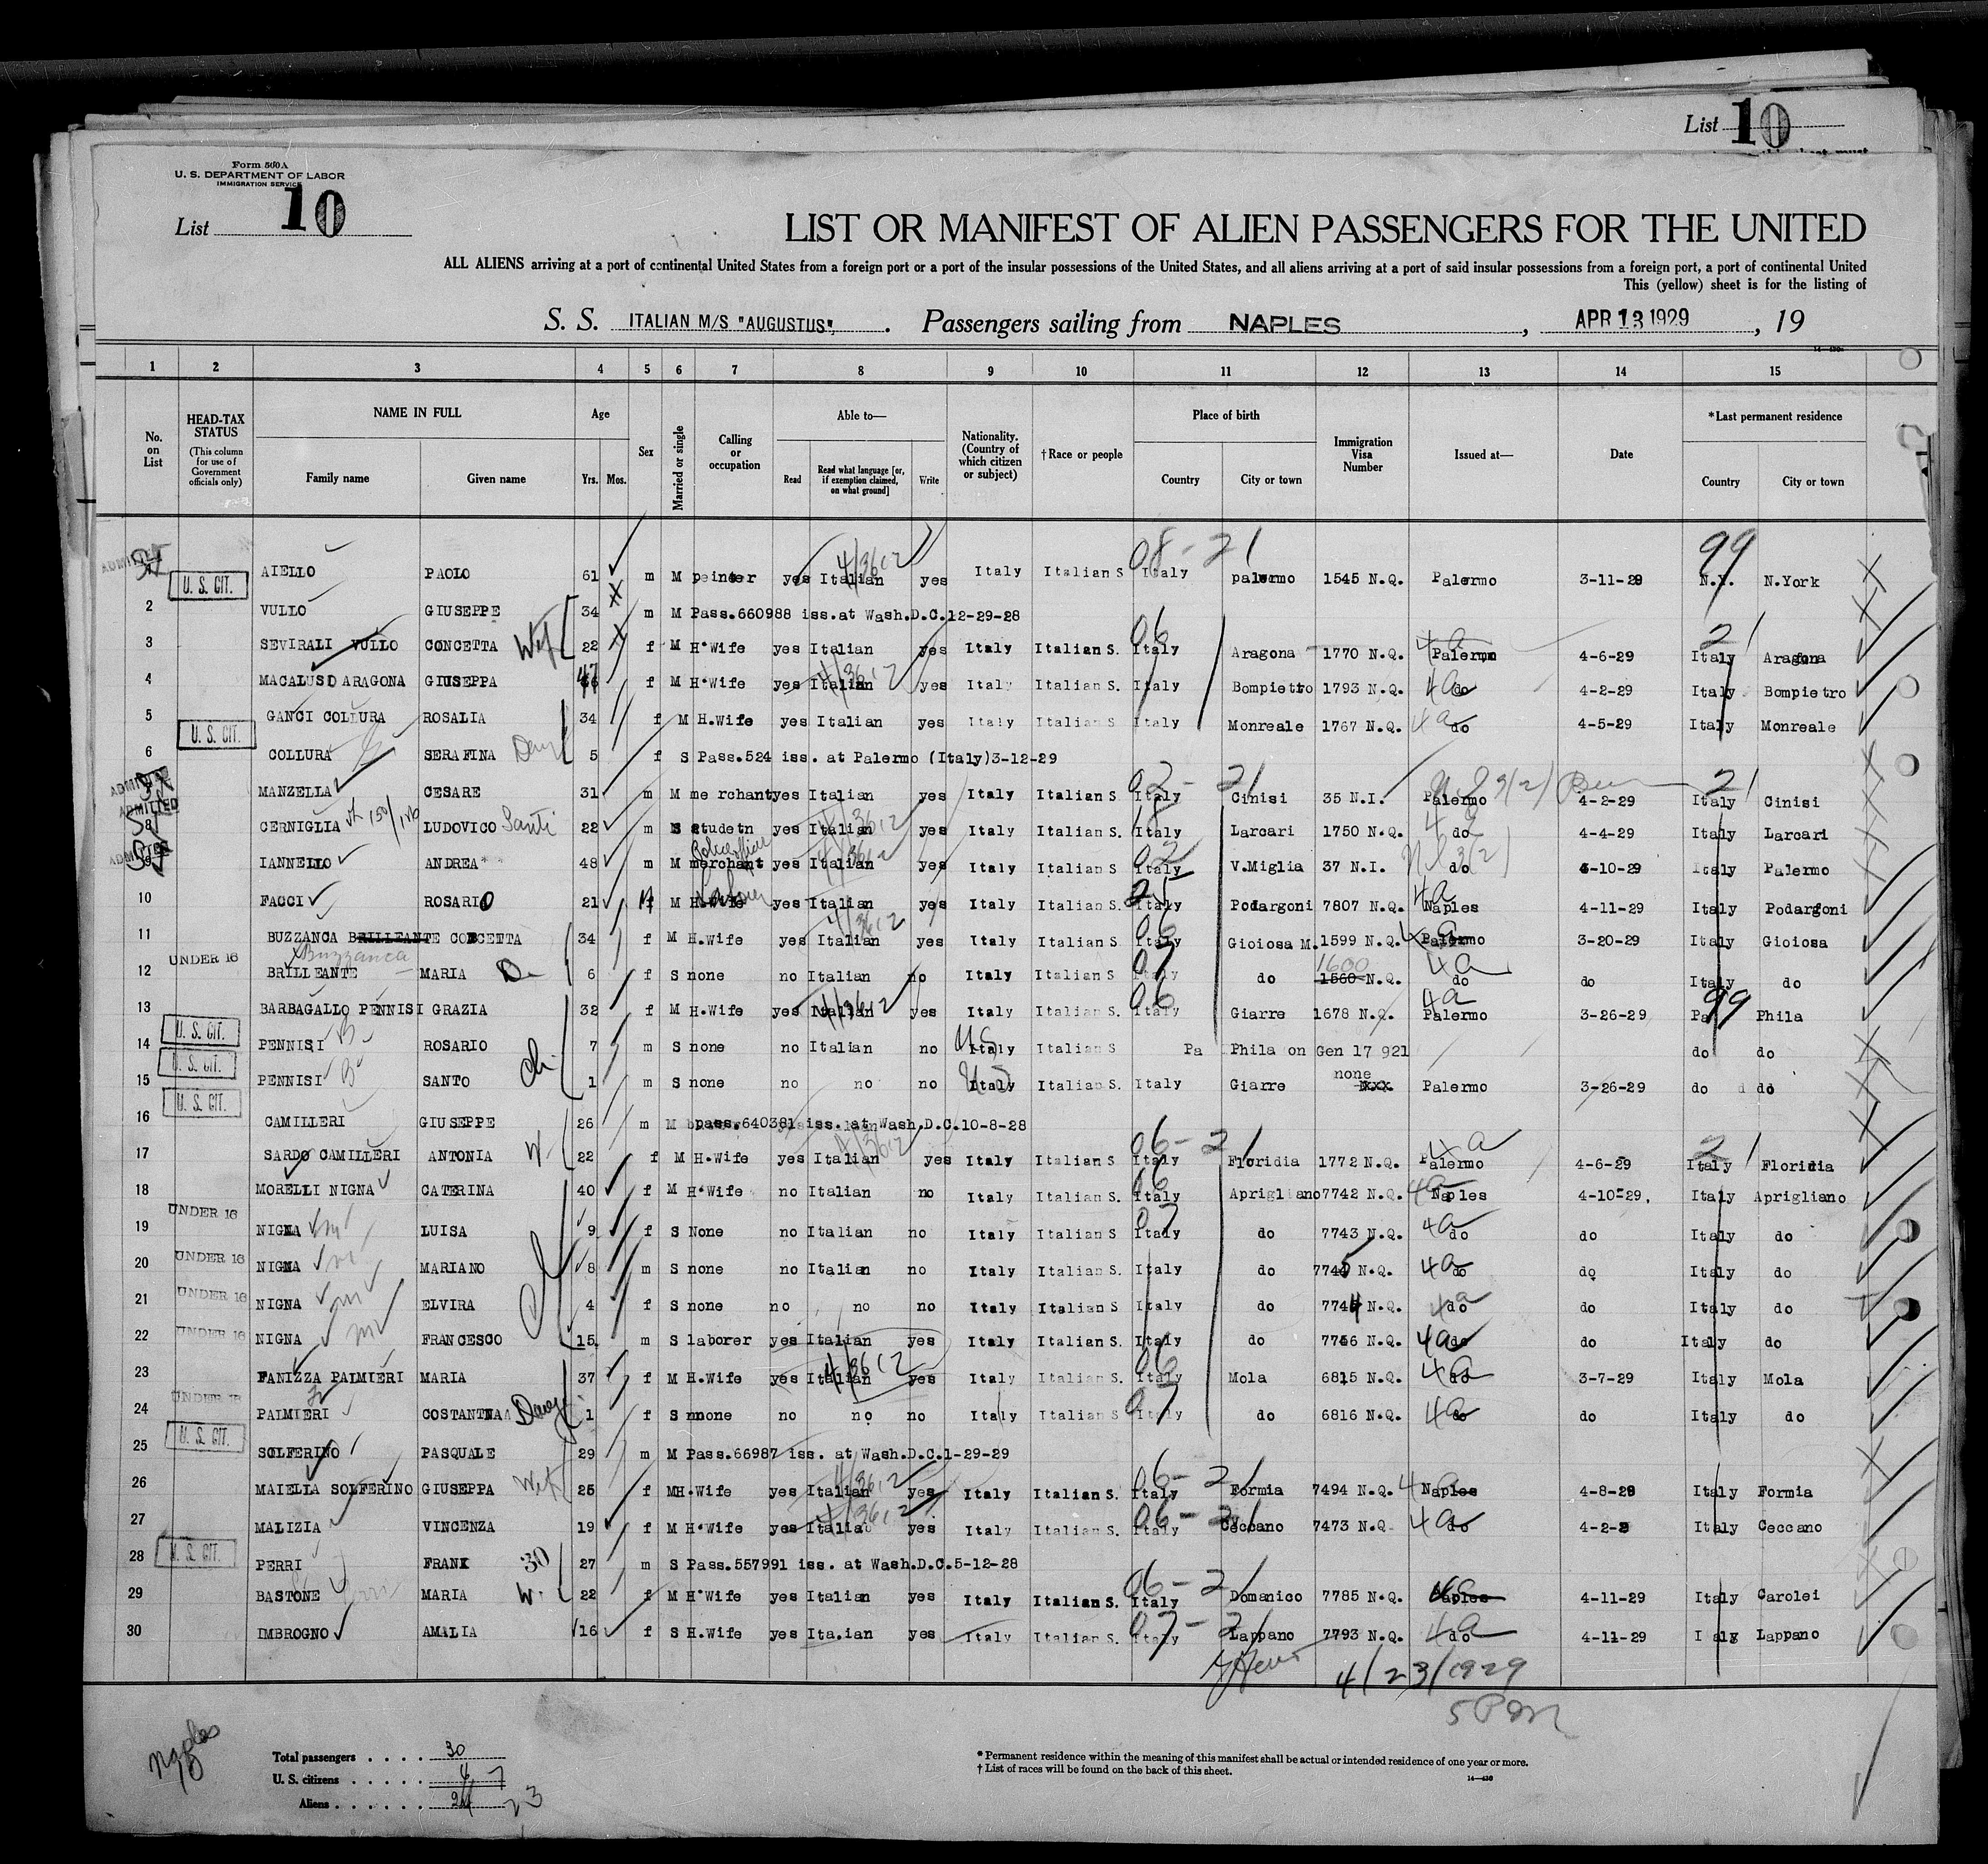 List 10
Form 500A
U. S. DEPARTMENT OF LABOR
IMMIGRATION SERVICE
List 10
LIST OR MANIFEST OF ALIEN PASSENGERS FOR THE UNITED
ALL ALIENS arriving at a port of continental United States from a foreign port or a port of the insular possessions of the United States, and all aliens arriving at a port of said insular possessions from a foreign port, a port of continental United
This (yellow) sheet is for the listing of
S. S. ITALIAN M/S "AUGUSTUS", . Passengers sailing from NAPLES, APR 13 1929, 19
1 2 3 4 5 6 7 8 9 10 11 12 13 14 15
No. on List
HEAD-TAX STATUS
(This column for use of Government officials only)
NAME IN FULL
Family name Given name
Age
Yrs. Mos.
Sex
Married or single
Calling or occupation
Able to—
Read Read what language [or, if exemption claimed, on what ground] Write
Nationality. (Country of which citizen or subject)
†Race or people
Place of birth
Country City or town
Immigration Visa Number
Issued at—
Date
*Last permanent residence
Country City or town
ADMITTED AIELLO PAOLO 61 m M yes Italian yes Italy Italian S Italy palermo 1545 N.Q. Palermo 3-11-29 N.Y. N.York
2 U. S. CIT. VULLO GIUSEPPE 34 m M Pass.660988 iss.at Wash.D.C.12-29-28
3 SEVIRALI VULLO CONCETTA Wife 22 f M H.Wife yes Italian yes Italy Italian S. Italy Aragona 1770 N.Q. Palermo 4-6-29 Italy Aragona
4 MACALUSO ARAGONA GIUSEPPA 47 f M H.Wife yes Italian yes Italy Italian S. Italy Bompietro 1793 N.Q. do 4-2-29 Italy Bompietro
5 GANCI COLLURA ROSALIA 34 f M H.Wife yes Italian yes Italy Italian S Italy Monreale 1767 N.Q. do 4-5-29 Italy Monreale
6 U. S. CIT. COLLURA SERAFINA 5 f S Pass.524 iss. at Palermo (Italy)3-12-29
ADMITTED MANZELLA CESARE 31 m M me rchant yes Italian yes Italy Italian S Italy Cinisi 35 N.I. Palermo 4-2-29 Italy Cinisi
ADMITTED 8 CERNIGLIA LUDOVICO Santi 22 m S studetn yes Italian yes Italy Italian S. Italy Larcari 1750 N.Q. do 4-4-29 Italy Larcari
ADMITTED 9 IANNELLO ANDREA 48 m M merchant yes Italian yes Italy Italian S Italy V.Miglia 37 N.I. do 10-29 Italy Palermo
10 FACCI ROSARIO 21 M M H.Wife yes Italian yes Italy Italian S. Italy Podargoni 7807 N.Q. Naples 4-11-29 Italy Podargoni
11 BUZZANCA BRILLEANTE CONCETTA 34 f M H.Wife yes Italian yes Italy Italian S Italy Gioiosa M. 1599 N.Q. Palermo 3-20-29 Italy Gioiosa
Buzzanca
12 UNDER 16 BRILLEANTE MARIA 6 f S none no Italian no Italy Italian S. Italy do 1600 1560 N.Q. do do Italy do
13 BARBAGALLO PENNISI GRAZIA 32 f M H.Wife yes Italian yes Italy Italian S. Italy Giarre 1678 N.Q. Palermo 3-26-29 Pa Phila
14 U. S. CIT. PENNISI ROSARIO 7 m S none no Italian no US Italy Italian S Pa Phila on Gen 17 921 do do
15 U. S. CIT. PENNISI SANTO 1 m S none no no no US Italy Italian S. Italy Giarre none Palermo 3-26-29 do do
16 U. S. CIT. CAMILLERI GIUSEPPE 26 m M pass.640381 iss. at Wash.D.C.10-8-28
17 SARDO CAMILLERI ANTONIA W 22 f M H.Wife yes Italian yes Italy Italian S Italy Floridia 1772 N.Q. Palermo 4-6-29 Italy Floridia
18 MORELLI NIGNA CATERINA 40 f M H.Wife no Italian no Italy Italian S Italy Aprigliano 7742 N.Q. Naples 4-10-29. Italy Aprigliano
19 UNDER 16 NIGNA LUISA 9 f S None no Italian no Italy Italian S Italy do 7743 N.Q. do do Italy do
20 UNDER 16 NIGNA MARIANO 8 m S none no Italian no Italy Italian S. Italy do 7745 N.Q. do do Italy do
21 UNDER 16 NIGNA ELVIRA 4 f S none no no no Italy Italian S Italy do 7744 N.Q. do do Italy do
22 UNDER 16 NIGNA FRANCESCO 15 m S laborer yes Italian yes Italy Italian S. Italy do 7746 N.Q. do do Italy do
23 FANIZZA PALMIERI MARIA 37 f M H.Wife yes Italian yes Italy Italian S. Italy Mola 6815 N.Q. do 3-7-29 Italy Mola
24 UNDER 16 PALMIERI COSTANTNAA 1 f S nnone no no no Italy Italian S Italy do 6816 N.Q. do do Italy do
25 U. S. CIT. SOLFERINO PASQUALE 29 m M Pass.66987 iss. at Wash.D.C.1-29-29
26 MAIELLA SOLFERINO GIUSEPPA Wife 25 f M H.Wife yes Italian yes Italy Italian S. Italy Formia 7494 N.Q. Naples 4-8-29 Italy Formia
27 MALIZIA VINCENZA 19 f M H.Wife yes Italian yes Italy Italian S. Italy Ceccano 7473 N.Q. do 4-2-2 Italy Ceccano
28 U. S. CIT. PERRI FRANK 30 27 m S Pass.557991 iss. at Wash.D.C.5-12-28
29 BASTONE MARIA W. 22 f M H.Wife yes Italian yes Italy Italian S. Italy Domanico 7785 N.Q. Naples 4-11-29 Italy Carolei
30 IMBROGNO AMALIA 16 f S H.Wife yes Ita.ian yes Italy Italian S. Italy Lappano 7793 N.Q. do 4-11-29 Lappano
4/23/1929
5 PM
Naples
Total passengers . . . . 30
U. S. citizens . . . . . 7
Aliens . . . . . . 24 23
* Permanent residence within the meaning of this manifest shall be actual or intended residence of one year or more.
† List of races will be found on the back of this sheet.
14—430